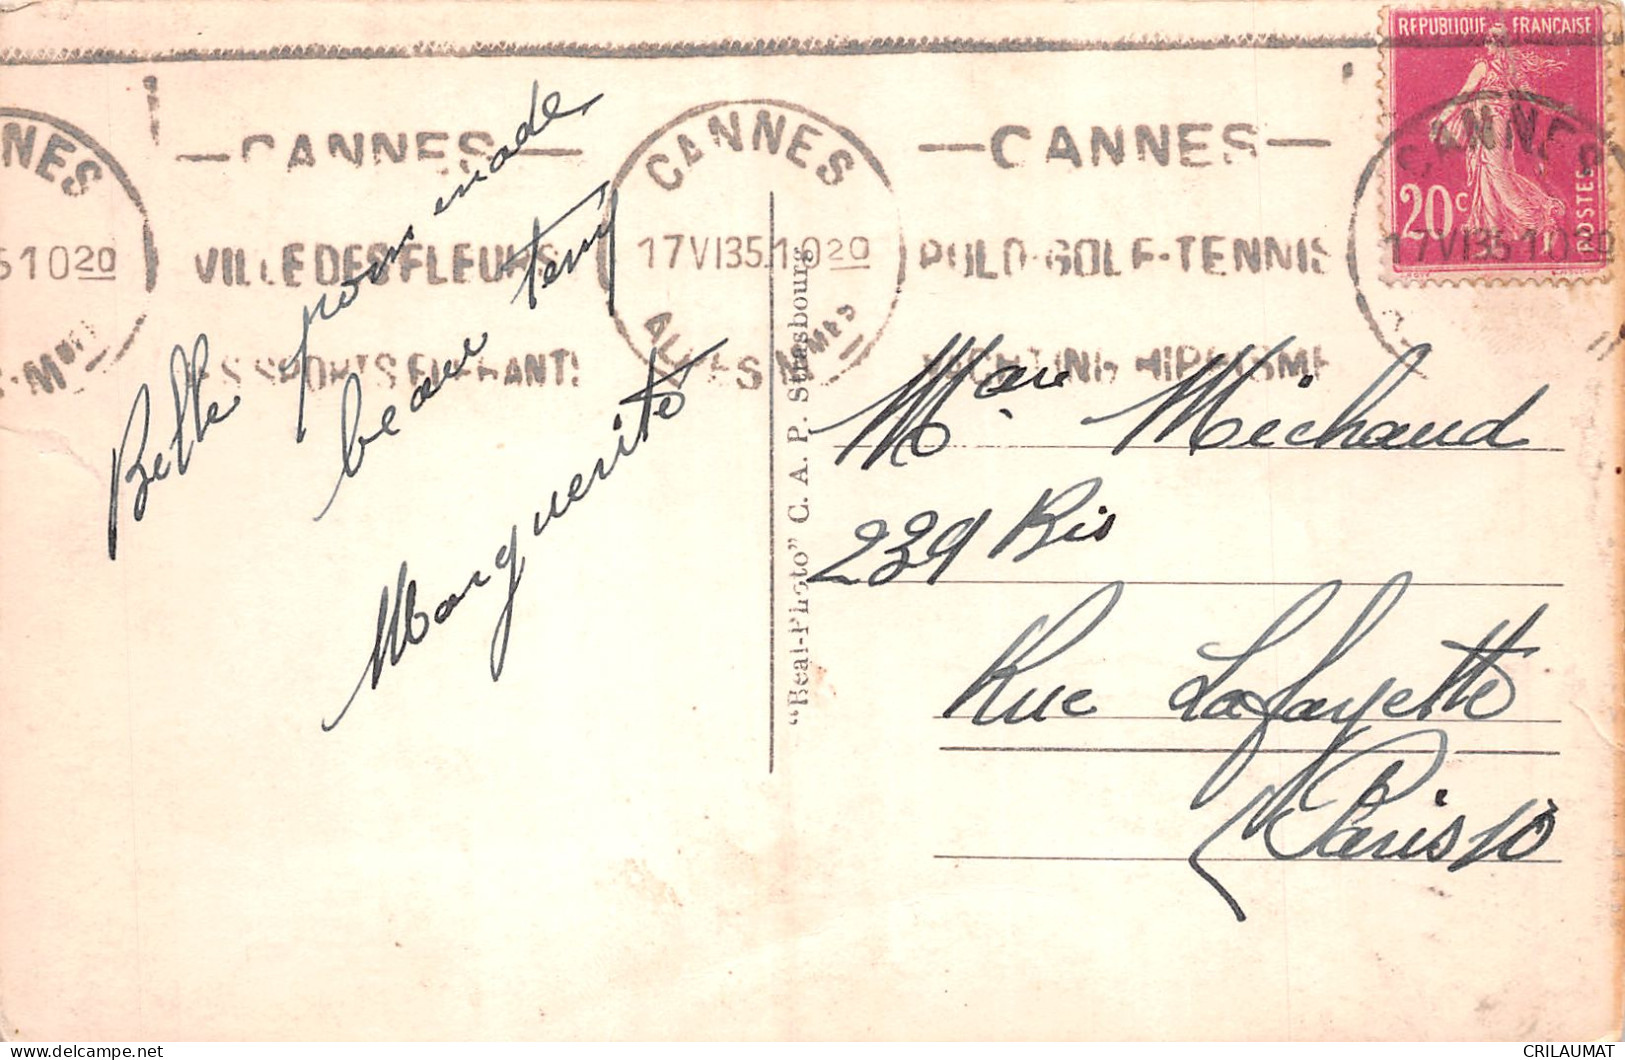 REPUBLIQUE FRANÇAISE
20c
POSTES
CANNES
17 VI 35 10 20
CANNES
NES
5 10 20
— CANNES —
VILLE DES FLEURS
SPORTS ELEGANTS
CANNES
17 VI 35 10 20
ALPES Mmes
— CANNES —
POLO-GOLF-TENNIS
YACHTING HIPPISME
Belle promenade
beau temp
Marguerite
"Real-Photo" C. A. P. Strasbourg
Michaud
239 Bis
Rue Lafayette
Paris 10
CRILAUMAT